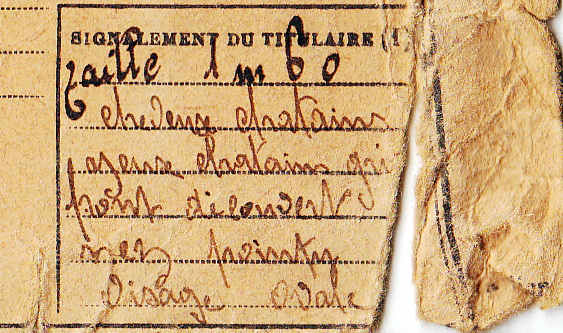 SIGNALEMENT DU TITULAIRE (1
Taille 1 m 60
cheveux chatains
yeux chatain gri
front découvert
nez pointu
Visage Ovale